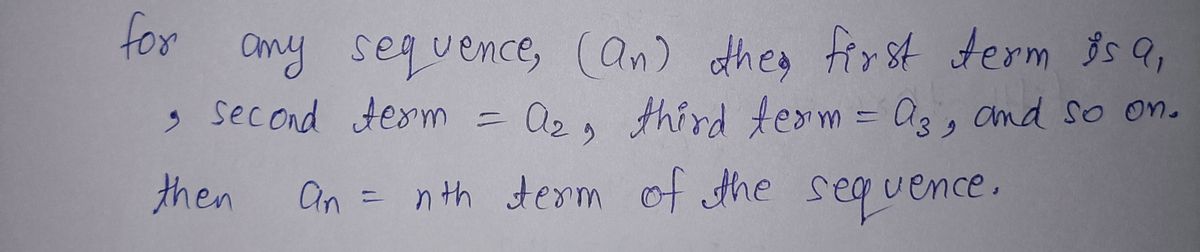 for any sequence, (an) then first term is a1
, second term = a2, third term = a3, and so on.
then an = nth term of the sequence.